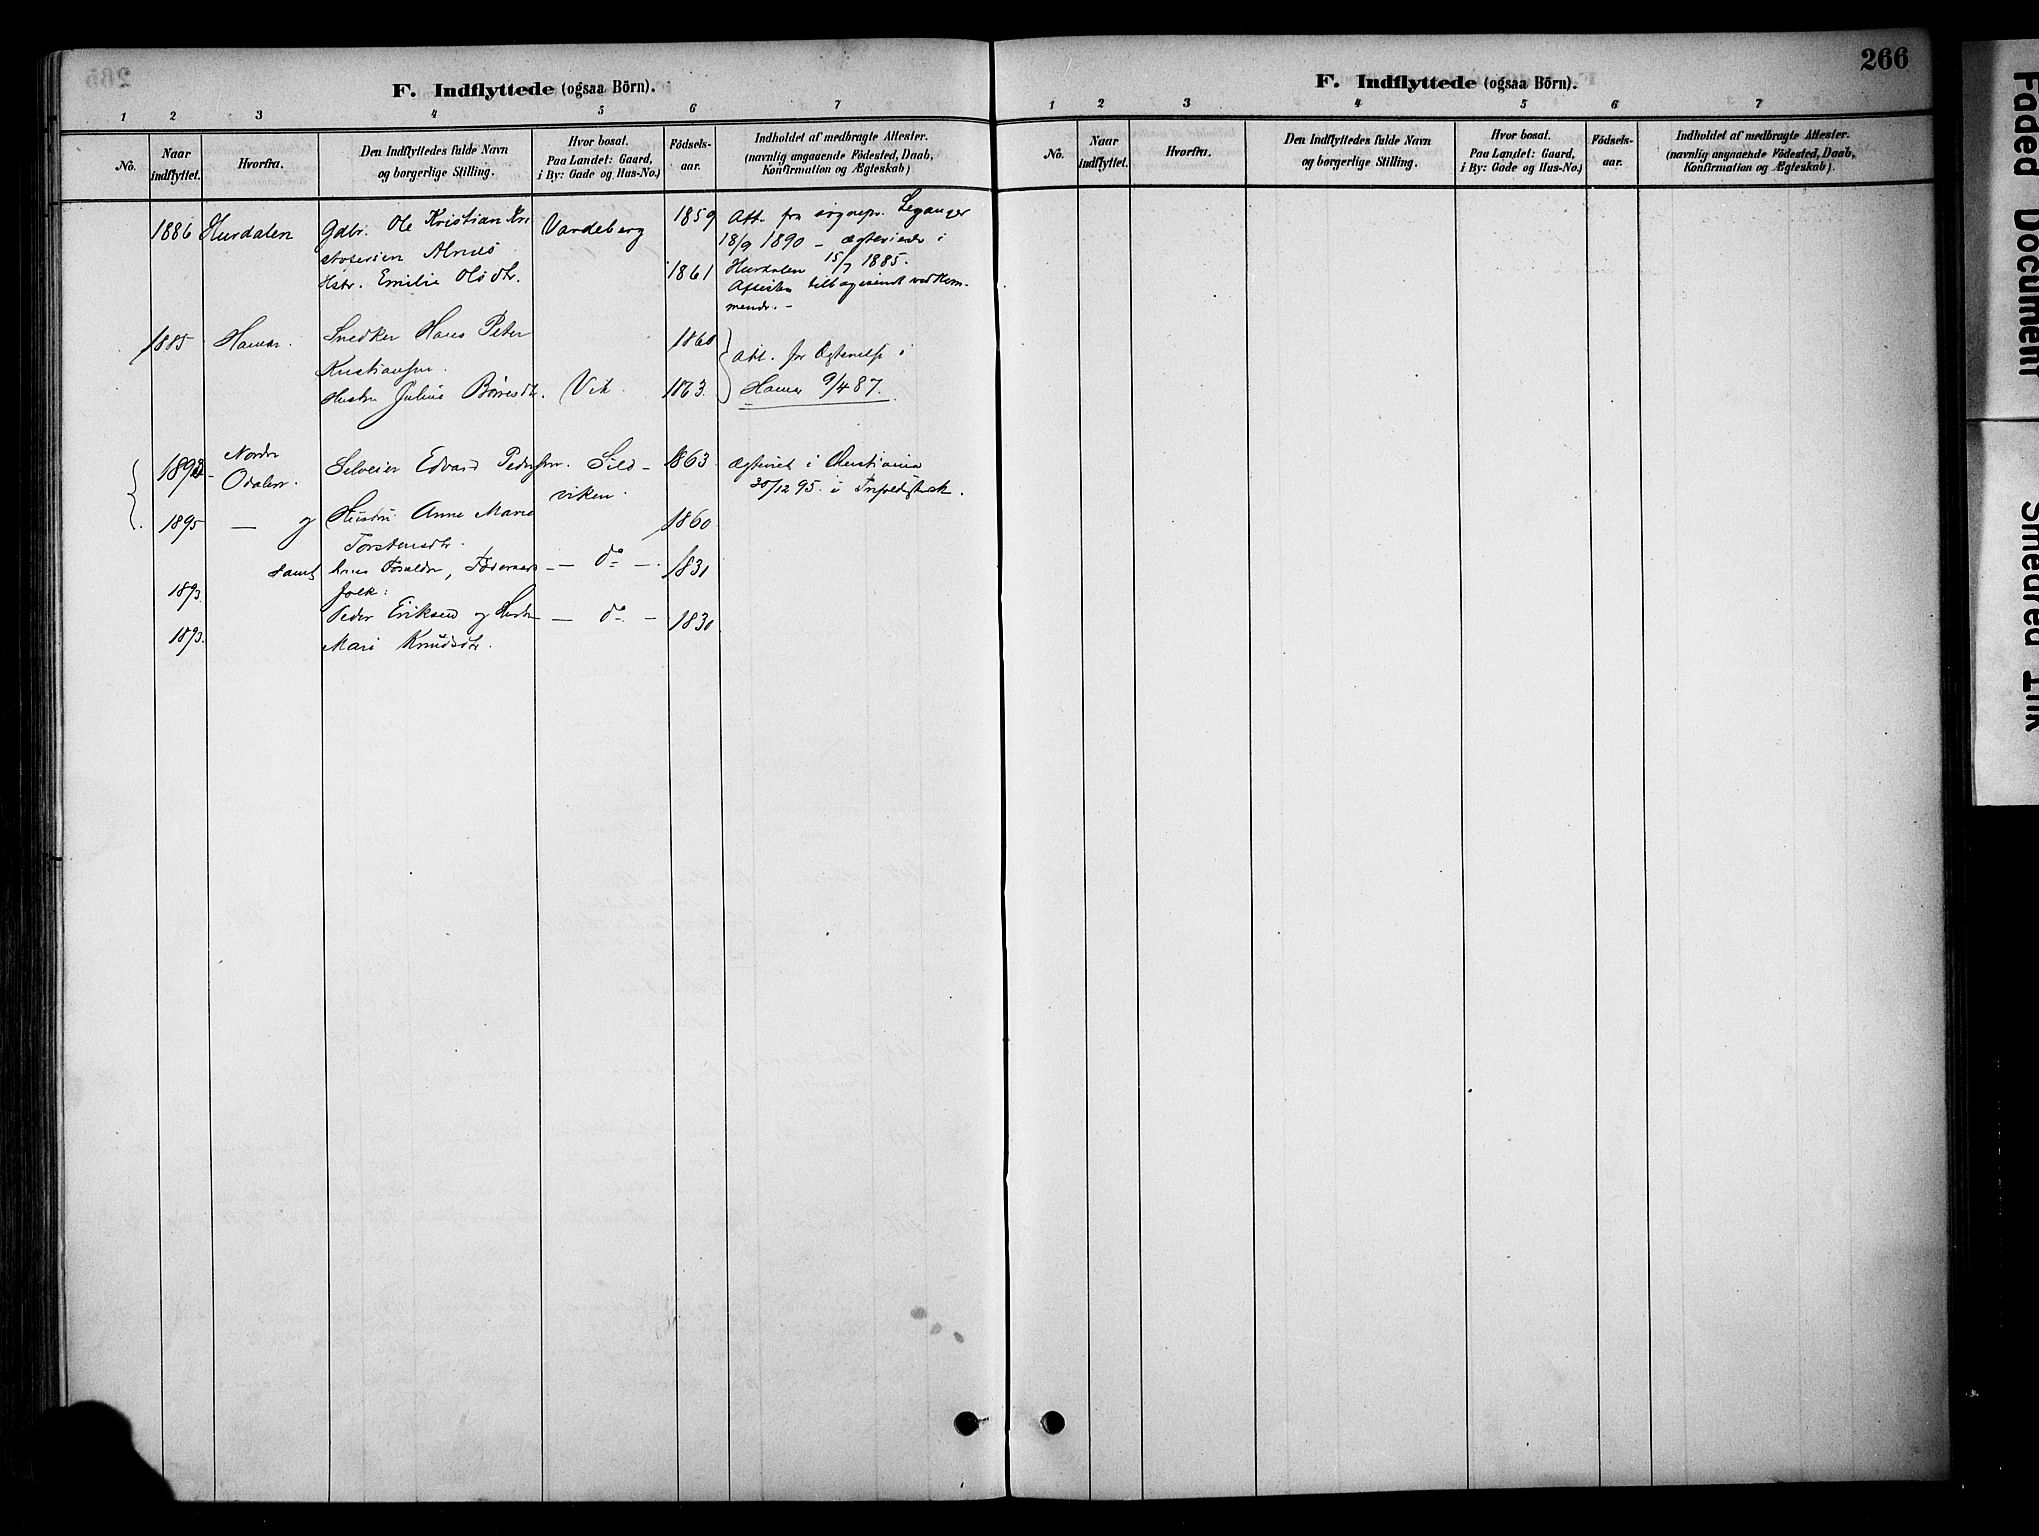 265
F. Indflyttede (ogsaa Börn).
1 2 3 4 5 6 7
No.
Naar indflyttet.
Hvorfra.
Den Indflyttedes fulde Navn og borgerlige Stilling.
Hvor bosat. Paa Landet: Gaard, i By: Gade og Hus-No.)
Födsels-aar.
Indholdet af medbragte Attester. (navnlig angaaende Födested, Daab, Konfirmation og Ægteskab)
1886 Hurdalen Gdbr. Ole Kristian Kri Vardeberg 1859 Att. fra sognepr. Leganger
18/9 1890 – ægteviede i
Hstr. Emilie Olsdtr. 1861 Hurdalen 15/7 1885.
Attesten tilbagesendt vedkom-
mende. –
1885 Hamar. Snedker Hans Peter 1860
Kristiansen. Att. for Ægtevielse i
Hustru Juline Børresdtr. Vik. 1863. Hamar 9/4 87.
Nordre Edvard Pedersen. Sild- 1863 Ægteviet i Christiania
Odalen. viken. 30/12 95. i
1895 — og Hustru Anne Marie 1860
Torstensdtr.
samt hans Forældre, — do — 1831
1893. folk:
Peder Eriksen og Hustru — do — 1830
1893. Mari Knudsdtr.
266
F. Indflyttede (ogsaa Börn).
1 2 3 4 5 6 7
No.
Naar indflyttet.
Hvorfra.
Den Indflyttedes fulde Navn og borgerlige Stilling.
Hvor bosat. Paa Landet: Gaard, i By: Gade og Hus-No.)
Födsels-aar.
Indholdet af medbragte Attester. (navnlig angaaende Födested, Daab, Konfirmation og Ægteskab).
Faded Document
Smeared Ink